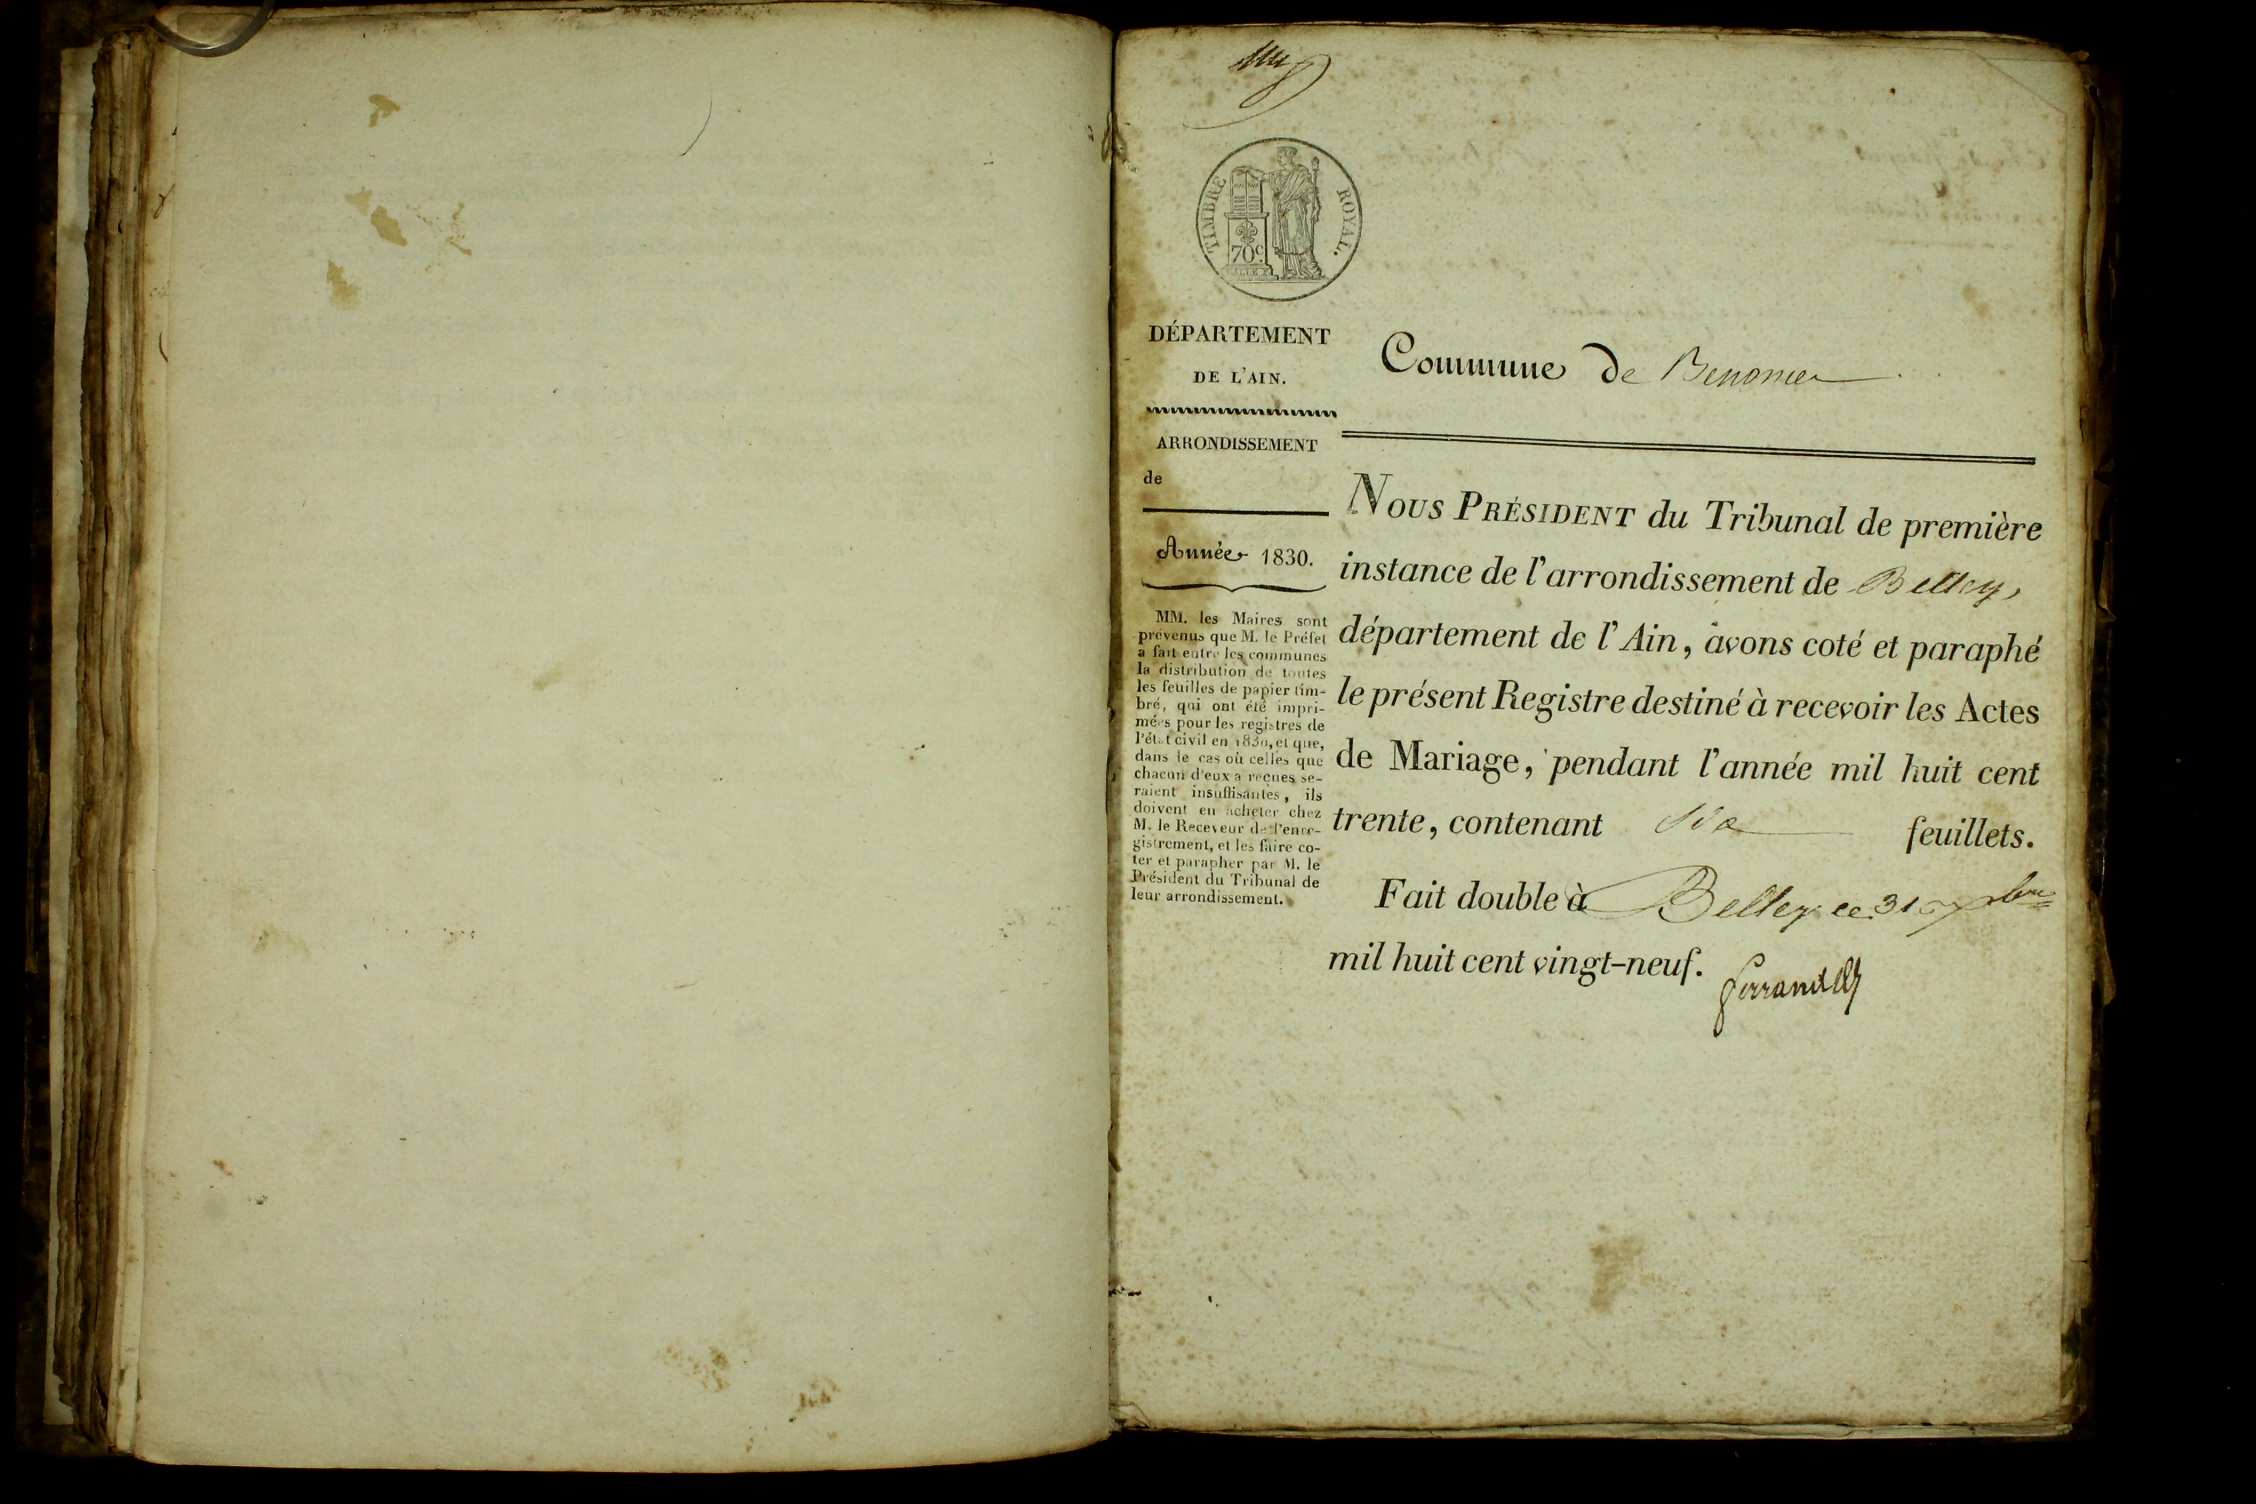 TIMBRE ROYAL.
70c.
DÉPARTEMENT
DE L'AIN.
ARRONDISSEMENT
de
Année 1830.
MM. les Maires sont
prévenus que M. le Préfet
a fait entre les communes
la distribution de toutes
les feuilles de papier tim-
bré, qui ont été impri-
mées pour les registres de
l'état civil en 1830, et que,
dans le cas où celles que
chacun d'eux a reçues se-
raient insuffisantes, ils
doivent en acheter chez
M. le Receveur de l'enre-
gistrement, et les faire co-
ter et parapher par M. le
Président du Tribunal de
leur arrondissement.
Commune de Benonces
NOUS PRÉSIDENT du Tribunal de première
instance de l'arrondissement de Belley,
département de l'Ain, avons coté et paraphé
le présent Registre destiné à recevoir les Actes
de Mariage, pendant l'année mil huit cent
trente, contenant feuillets.
Fait double à Belley ce 31 Xbre
mil huit cent vingt-neuf.